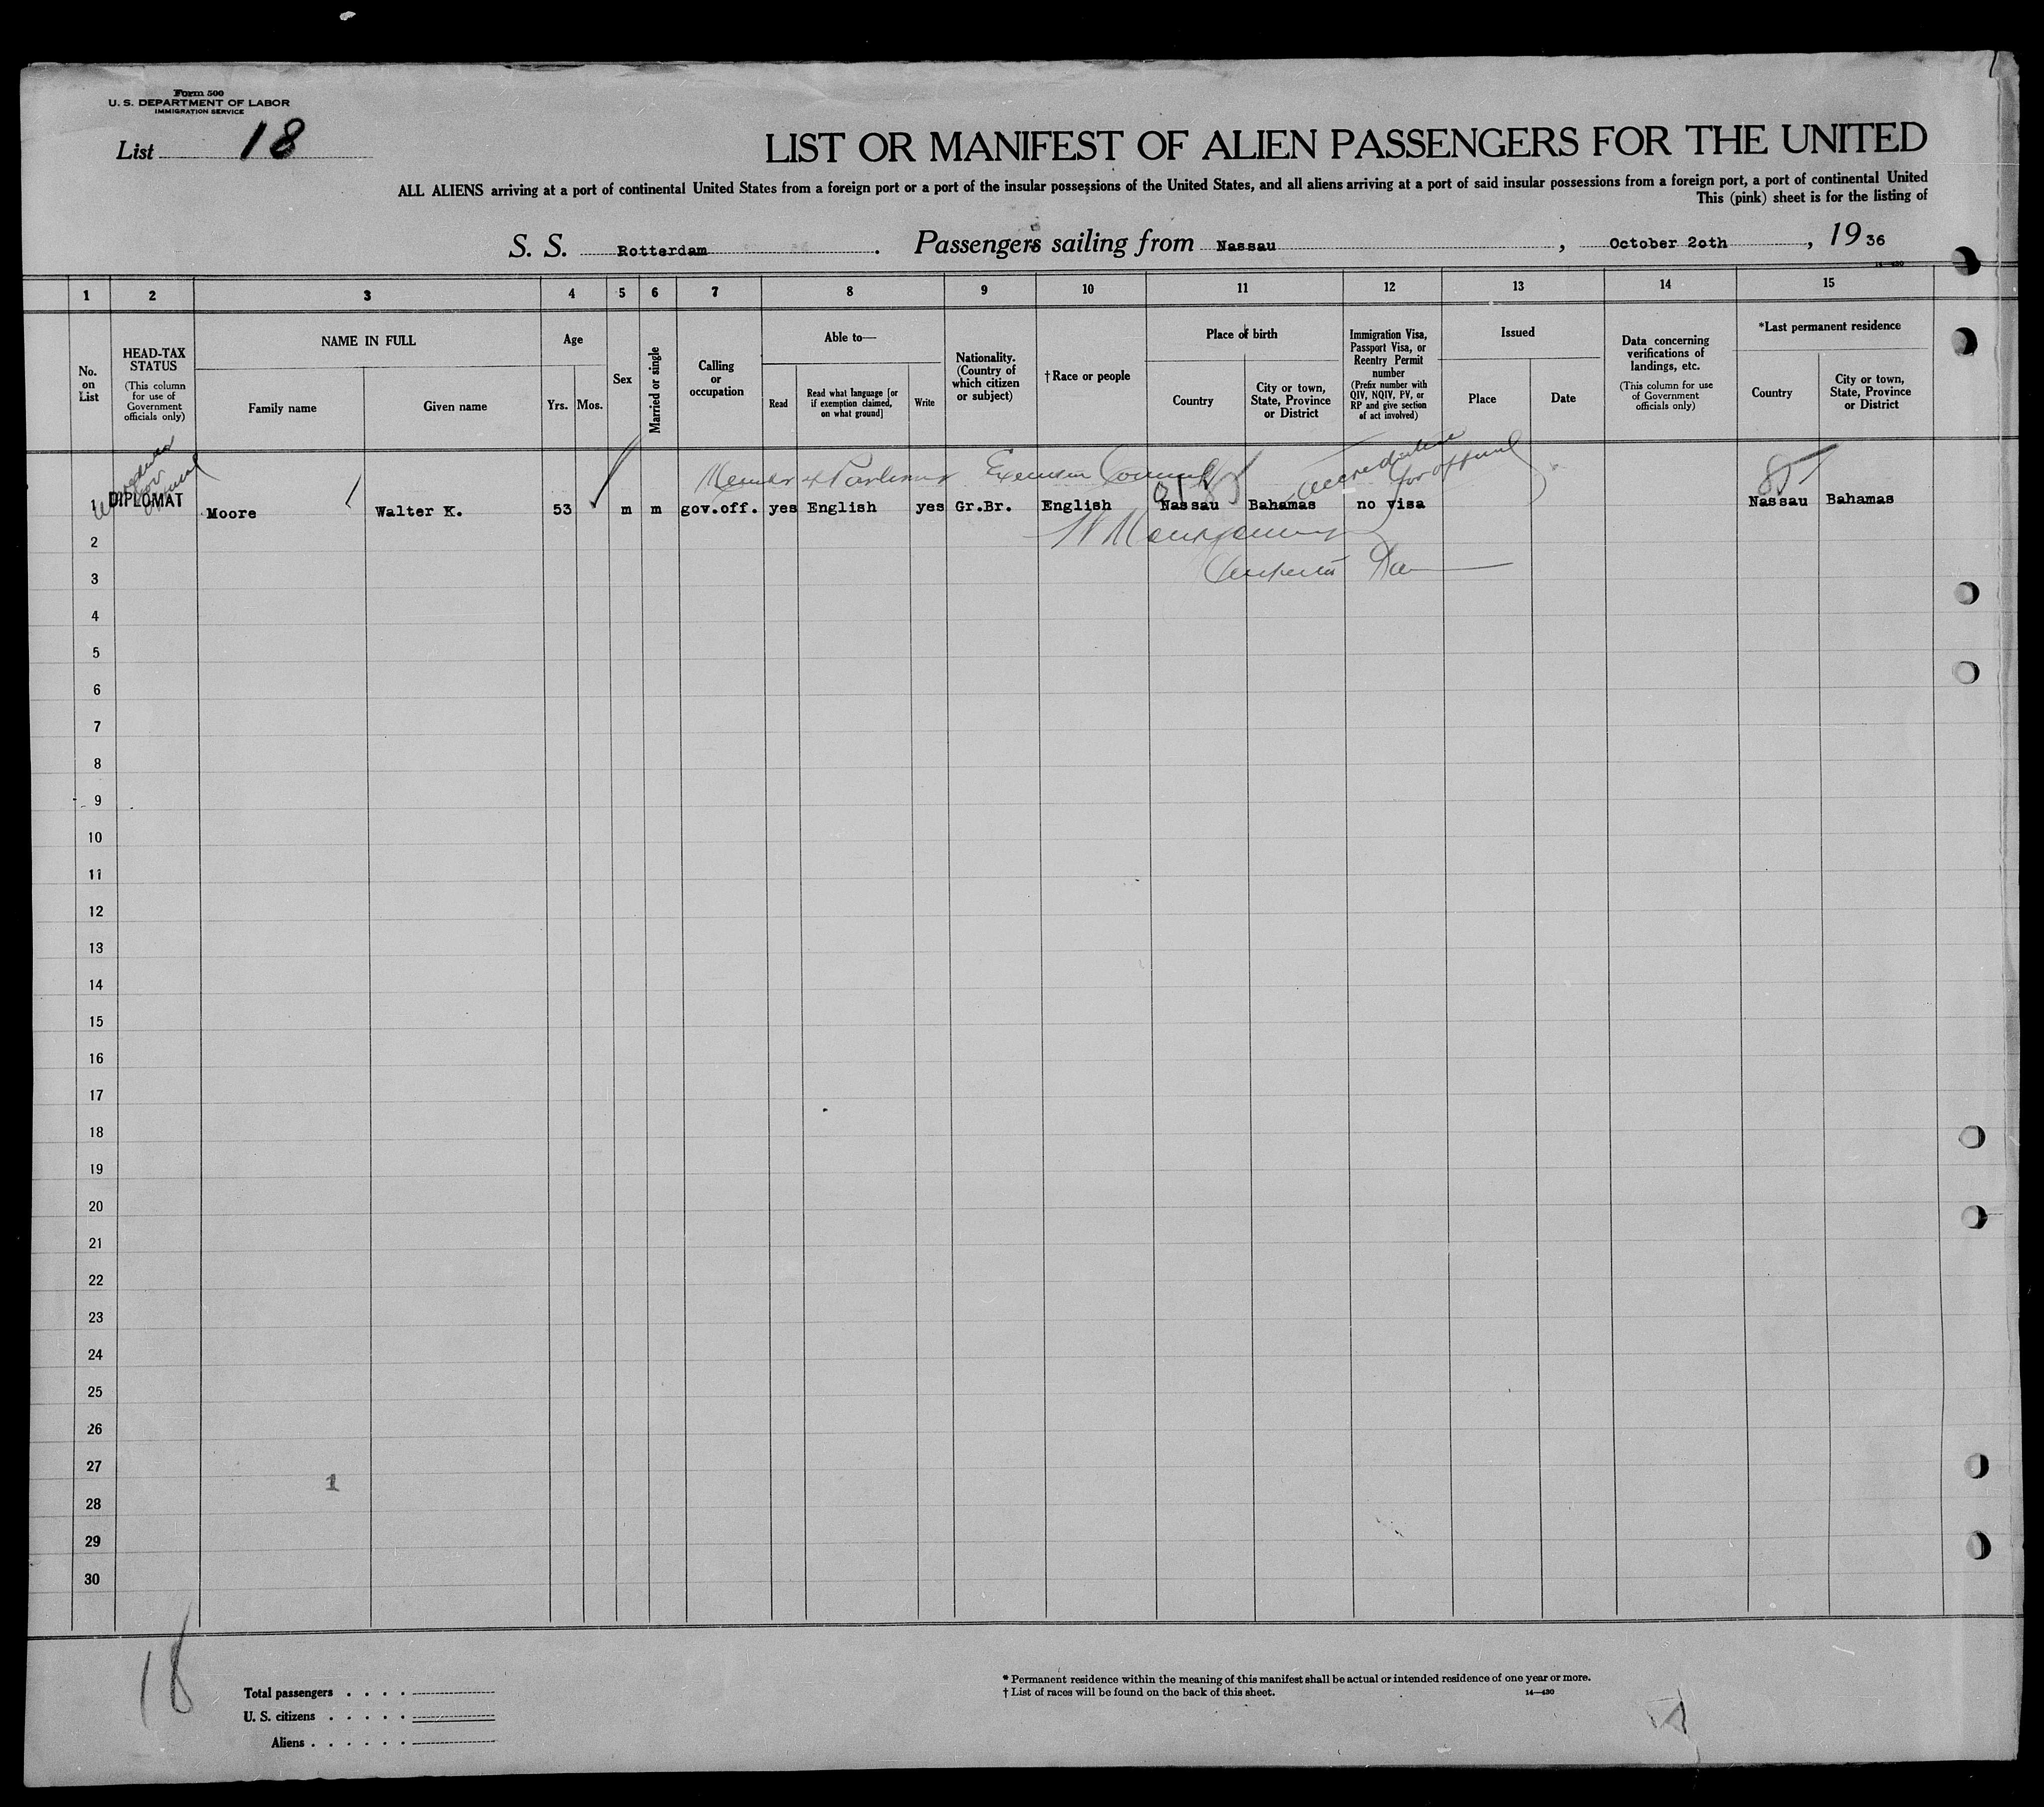 Form 500
U. S. DEPARTMENT OF LABOR
IMMIGRATION SERVICE
List 18
LIST OR MANIFEST OF ALIEN PASSENGERS FOR THE UNITED
ALL ALIENS arriving at a port of continental United States from a foreign port or a port of the insular possessions of the United States, and all aliens arriving at a port of said insular possessions from a foreign port, a port of continental United
This (pink) sheet is for the listing of
S. S. Rotterdam. Passengers sailing from Nassau, October 20th, 19 36
14—430
1 2 3 4 5 6 7 8 9 10 11 12 13 14 15
No. on List
HEAD-TAX STATUS
(This column for use of Government officials only)
NAME IN FULL
Family name
Given name
Age
Yrs.
Mos.
Sex
Married or single
Calling or occupation
Able to—
Read
Read what language [or if exemption claimed, on what ground]
Write
Nationality. (Country of which citizen or subject)
†Race or people
Place of birth
Country
City or town, State, Province or District
Immigration Visa, Passport Visa, or Reentry Permit number
(Prefix number with QIV, NQIV, PV, or RP and give section of act involved)
Issued
Place
Date
Data concerning verifications of landings, etc.
(This column for use of Government officials only)
*Last permanent residence
Country
City or town, State, Province or District
Member of Parliament Executive Council
Accredited for official
85
1 DIPLOMAT Moore Walter K. 53 m m gov.off. yes English yes Gr.Br. English Nassau Bahamas no visa Nassau Bahamas
2
3
4
5
6
7
8
9
10
11
12
13
14
15
16
17
18
19
20
21
22
23
24
25
26
27
1
28
29
30
18
Total passengers
U. S. citizens
Aliens
* Permanent residence within the meaning of this manifest shall be actual or intended residence of one year or more.
† List of races will be found on the back of this sheet.
14—430